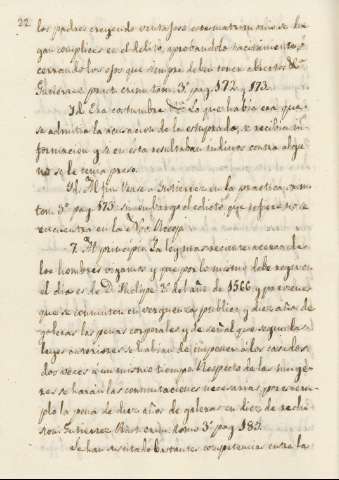 22 los padres creyendo ventajoso este matrimonio se ha-
gan complices en el delito, aprobandolo tacitamente, ó
cerrando los ojos que siempre deben tener abiertos &c.
Gutierrez pract. crim. tom. 3º pag. 172 y 173.
Id. Era costumbre &c. Lo que habia era que
se admitia la acusacion de la estuprada, se recibia in-
formacion y si en esta resultaban indicios contra algu-
no se le tenia preso.
Id. Al fin vease a Gutierrez en la practica crim.
tom. 3º pag. 175. sin embargo el edicto que refiere no se
encuentra en la Nov. Recop.
7. Al principio. La ley mas reciente acerca de
los hombres vigamos y que por lo mismo debe regir en
el dia es de D. Phelipe 2º del año de 1566. y previene
que se conmuten en verguenza publica y diez años de
galeras las penas corporales y de señal que segun las
leyes anteriores se habian de imponer á los casados
dos veces a un mismo tiempo. Respecto de las muge-
res se harán las conmutaciones necesarias, por exem-
plo la pena de diez años de galeras en diez de reclu-
sion. Gutierrez Pract. crim. tomo 3º pag. 185.
Se han suscitado bastantes competencias entre la